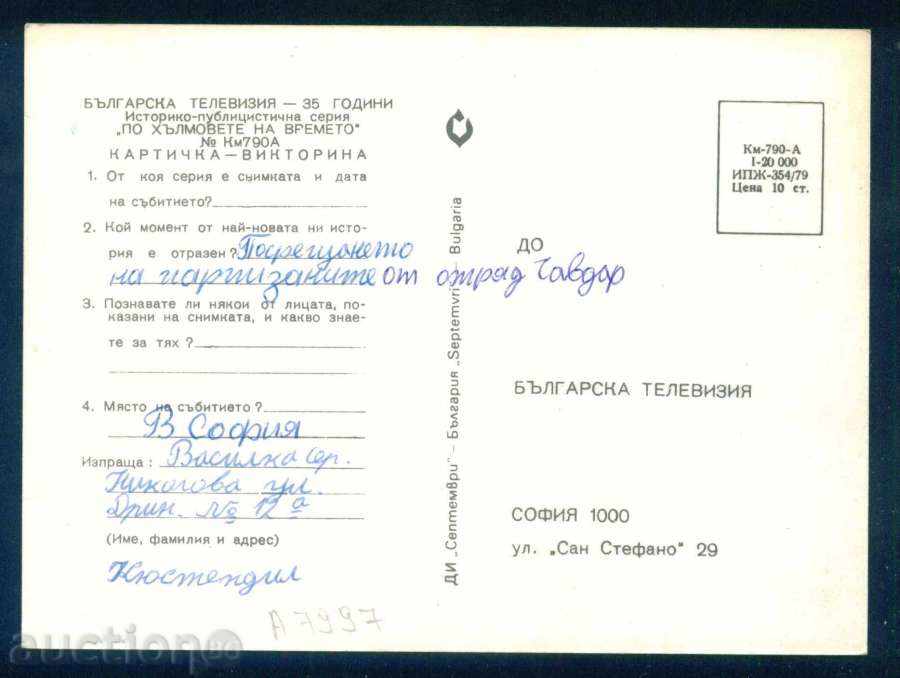 БЪЛГАРСКА ТЕЛЕВИЗИЯ — 35 ГОДИНИ
Историко-публицистична серия
„ПО ХЪЛМОВЕТЕ НА ВРЕМЕТО"
№ Км790А
КАРТИЧКА — ВИКТОРИНА
1. От коя серия е снимката и дата
на събитието?
2. Кой момент от най-новата ни исто-
рия е отразен? Посрещането
на партизаните от отряд Чавдар
3. Познавате ли някои от лицата, по-
казани на снимката, и какво знае-
те за тях?
4. Място на събитието?
В София
Изпраща: Василка
ул.
Дрин. № 12 а
(Име, фамилия и адрес)
Кюстендил
А 7997
ДИ „Септември" — България „Septemvri" — Bulgaria
Км-790-А
I-20 000
ИПЖ-354/79
Цена 10 ст.
ДО
БЪЛГАРСКА ТЕЛЕВИЗИЯ
СОФИЯ 1000
ул. „Сан Стефано" 29
auction